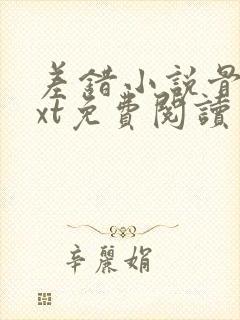 差錯小説骨
xt免費閱讀
辛麗娟